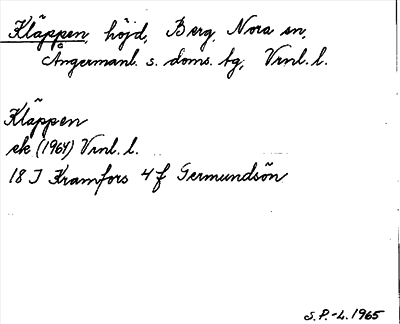 Kläppen, höjd, Berg, Nora sn,
Ångermanl. s. doms. tg, Vrnl. l.
Kläppen
ek (1964) Vrnl. l.
18 J Kramfors 4 f Germundsön
S.P.-L. 1965